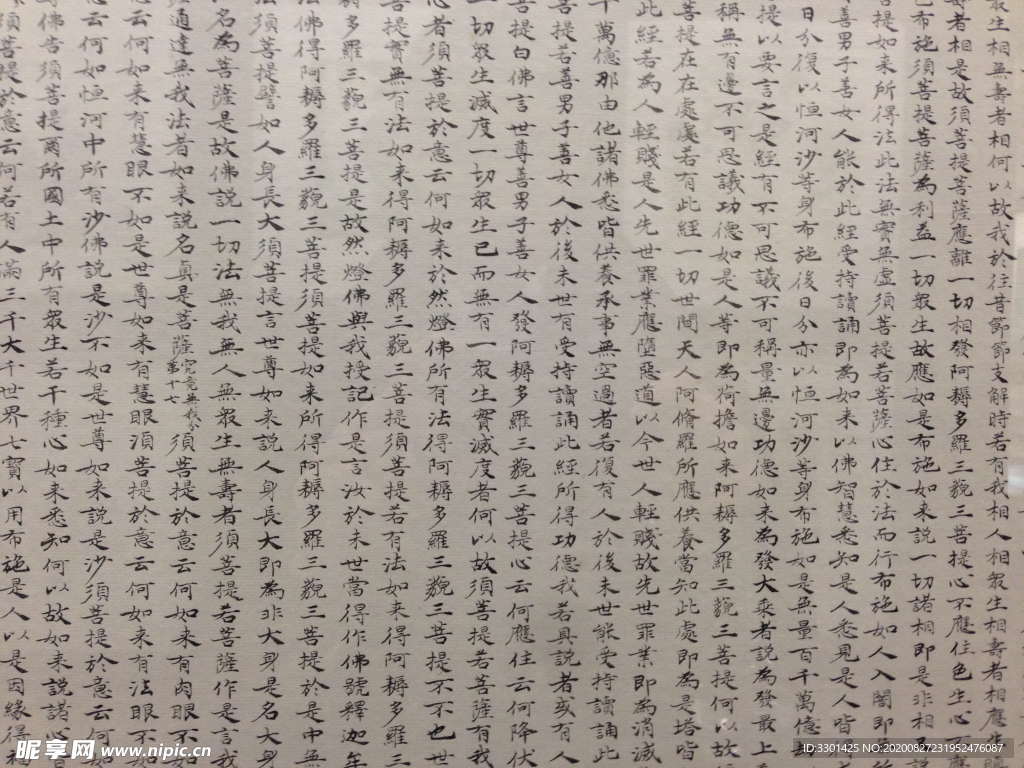 眾生相無壽者相何以故我於往昔節節支解時若有我相人相眾生相壽者相應生瞋
壽者相是故須菩提菩薩應離一切相發阿耨多羅三藐三菩提心不應住色生心不應
布施須菩提菩薩為利益一切眾生故應如是布施如來說一切諸相即是非相又
菩提如來所得法此法無實無虛須菩提若菩薩心住於法而行布施如人入闇即無所
善男子善女人能於此經受持讀誦即為如來以佛智慧悉知是人悉見是人皆
日分復以恒河沙等身布施後日分亦以恒河沙等身布施如是無量百千萬億劫
提以要言之是經有不可思議不可稱量無邊功德如來為發大乘者說為發最上
稱無有邊不可思議功德如是人等即為荷擔如來阿耨多羅三藐三菩提何以故
菩提在在處處若有此經一切世間天人阿脩羅所應供養當知此處即為是塔皆
此經若為人輕賤是人先世罪業應墮惡道以今世人輕賤故先世罪業即為消滅
千萬億那由他諸佛悉皆供養承事無空過者若復有人於後末世能受持讀誦此
菩提若善男子善女人於後末世有受持讀誦此經所得功德我若具說者或有人
菩提白佛言世尊善男子善女人發阿耨多羅三藐三菩提心云何應住云何降伏
一切眾生滅度一切眾生已而無有一眾生實滅度者何以故須菩提若菩薩有我
者須菩提於意云何如來於然燈佛所有法得阿耨多羅三藐三菩提不不也世
菩提實無有法如來得阿耨多羅三藐三菩提須菩提若有法如來得阿耨多羅三
多羅三藐三菩提是故然燈佛與我授記作是言汝於來世當得作佛號釋迦牟
法佛得阿耨多羅三藐三菩提須菩提如來所得阿耨多羅三藐三菩提於是中無
須菩提譬如人身長大須菩提言世尊如來說人身長大即為非大身是名大身
名為菩薩是故佛說一切法無我無人無眾生無壽者須菩提若菩薩作是言我
通達無我法者如來說名真是菩薩究竟無我分第十七須菩提於意云何如來有肉眼不如
云何如來有慧眼不如是世尊如來有慧眼須菩提於意云何如來有法眼不如
云何如恒河中所有沙佛說是沙不如是世尊如來說是沙須菩提於意云何如
佛告須菩提爾所國土中所有眾生若干種心如來悉知何以故如來說諸心皆
須菩提於意云何若有人滿三千大千世界七寶以用布施是人以是因緣得福
昵享网 www.nipic.cn
ID:3301425 NO:20200827231952476087